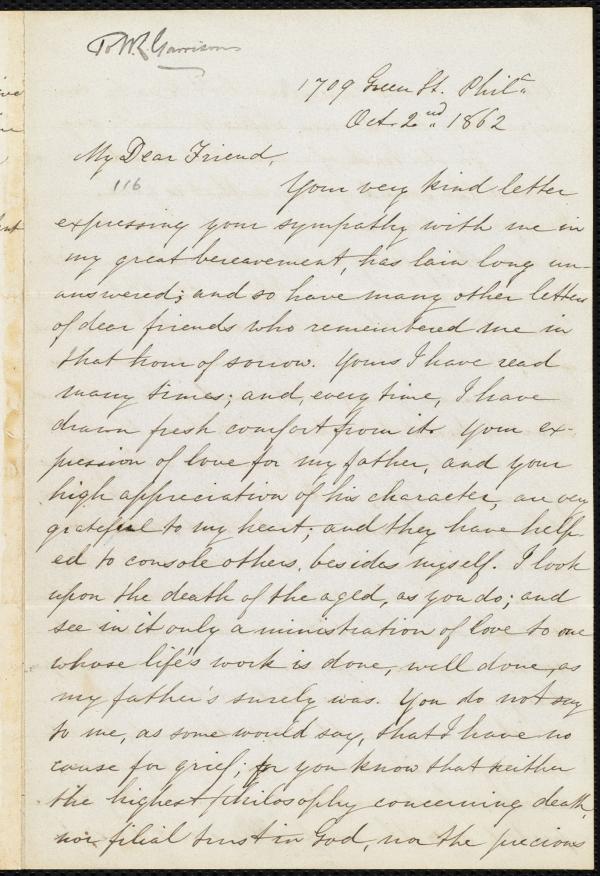 To W. L. Garrison
1709 Green St. Phila
Oct. 2nd 1862
My Dear Friend,
116
Your very kind letter
expressing your sympathy with me in
my great bereavement, has lain long un-
answered; and so have many other letters
of dear friends who remembered me in
that hour of sorrow. Yours I have read
many times; and, every time, I have
drawn fresh comfort from it. Your ex-
pression of love for my father, and your
high appreciation of his character, are very
grateful to my heart; and they have help-
ed to console others, besides myself. I look
upon the death of the aged, as you do; and
see in it only a ministration of love to one
whose life's work is done, well done, as
my father's surely was. You do not say
to me, as some would say, that I have no
cause for grief; for you know that neither
the highest philosophy concerning death,
nor filial trust in God, nor the precious